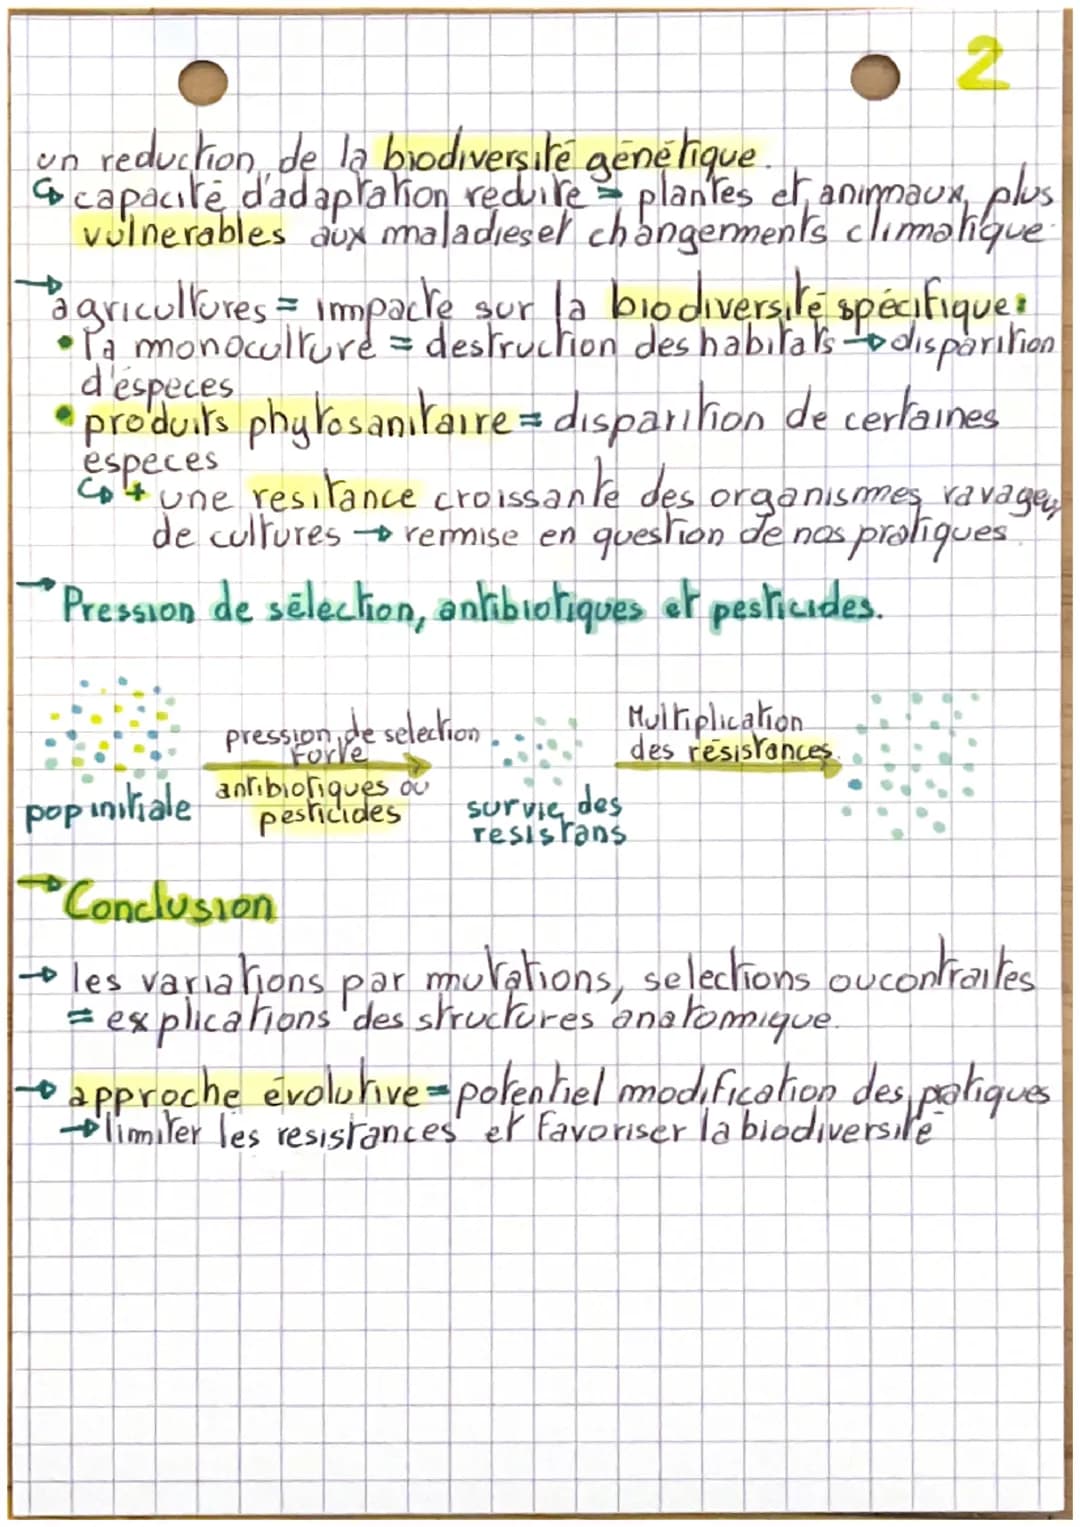 2
un reduction de la biodiversité génétique.
↳ capacité d'adaptation reduite = plantes et animaux plus
vulnerables aux maladies et changements climatique.
→ agricultures = impacte sur la biodiversité spécifique:
• la monoculture = destruction des habitats → disparition
d'éspeces
• produits phytosanitaire = disparition de certaines
especes
↳ + une resitance croissante des organismes ravageurs
de cultures → remise en question de nos pratiques.
→ Pression de sélection, antibiotiques et pesticides.
pop initiale
pression de selection
forte
antibiotiques ou
pesticides
survie des
resistans
Multiplication
des résistances.
→ Conclusion
→ les variations par mutations, selections ou contraites
= explications des structures anatomique.
→ approche évolutive = potentiel modification des pratiques
→ limiter les resistances et favoriser la biodiversité